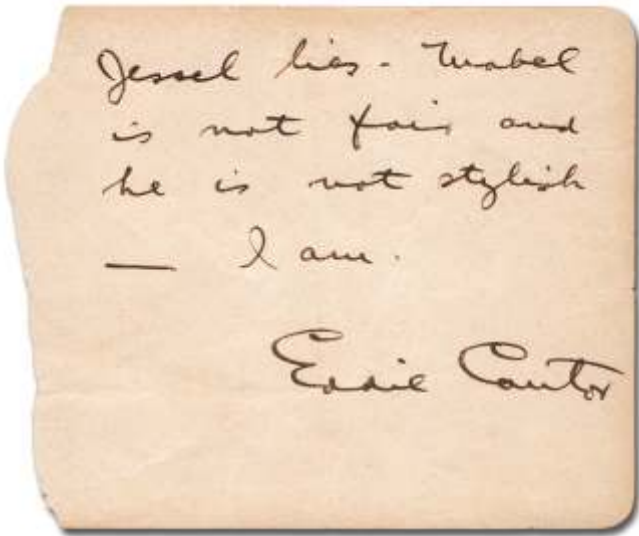 Jessel lies - Mabel
is not fair and
he is not stylish
— I am.
Eddie Cantor